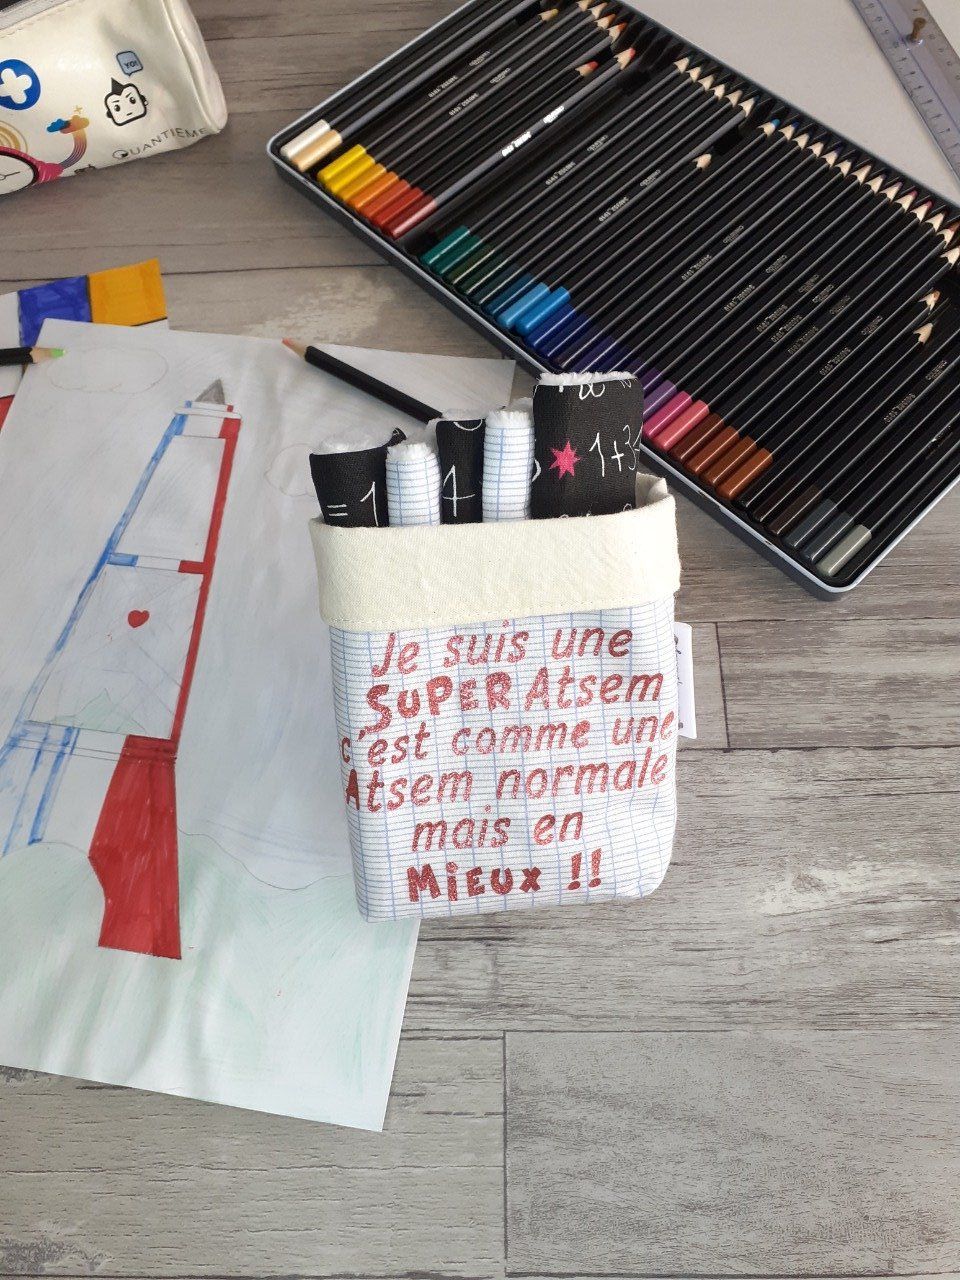 YO!
QUANTIEME
= 1
4
1+3
Je suis une
SUPER Atsem
c'est comme une
Atsem normale
mais en
MiEUX !!